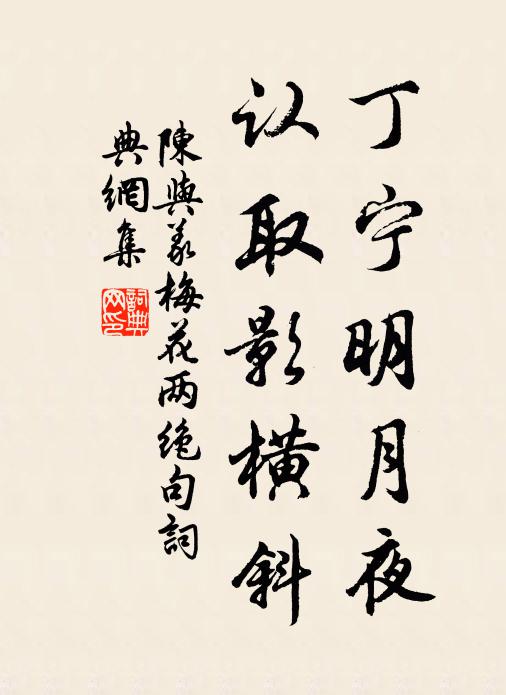 丁宁明月夜
认取影横斜
陳與義梅花两绝句詞
典網集
詞典网印